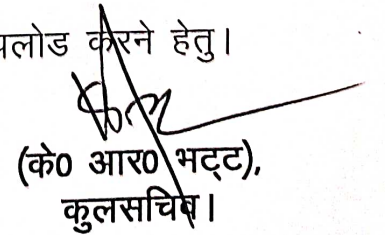 पलोड करने हेतु।
(के0 आर0 भट्ट),
कुलसचिव।